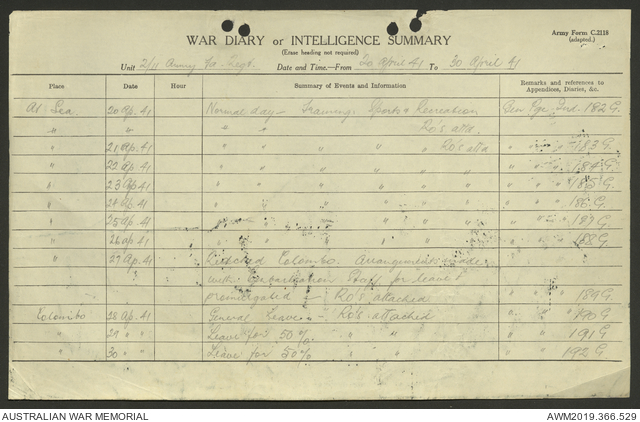 Army Form C.2118
(adapted.)
WAR DIARY or INTELLIGENCE SUMMARY
(Erase heading not required)
Unit 2/11 Army Fd. Regt. Date and Time.—From 20 April 41 To 30 April 41
Place Date Hour Summary of Events and Information Remarks and references to Appendices, Diaries, &c.
At Sea 20 Ap. 41 Normal day — Training. Sports & Recreation 182 G.
" " " " Ro's atta.
" 21 Ap. 41 " " " " " Ro's atta " " " 183 G.
" 22 Ap. 41 " " " " " " " " " 184 G.
" 23 Ap. 41 " " " " " " " " " 185 G.
" 24 Ap. 41 " " " " " " " " " 186 G.
" 25 Ap. 41 " " " " " " " 187 G.
" 26 Ap. 41 " " " " " " " " " 188 G.
" 27 Ap. 41 Colombo. Arrangements made
with Embarkation Staff for leave &
promulgated Ro's attached " " " 189 G.
Colombo 28 Ap. 41 General Leave — Ro's attached " " " 190 G.
" 29 " " Leave for 50% " " " " 191 G
" 30 " " Leave for 50% " " " " 192 G.
AUSTRALIAN WAR MEMORIAL
AWM2019.366.529